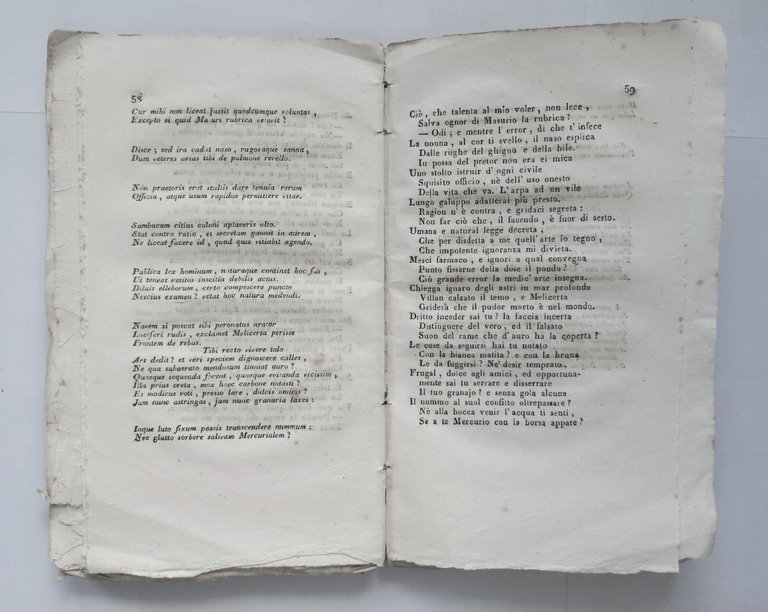 58
Cur mihi non liceat jussit quodcumque voluntas,
Excepto si quid Masuri rubrica vetavit?
Disce; sed ira cadat naso, rugosaque sanna,
Dum veteres avias tibi de pulmone revello.
Non praetoris erat stultis dare tenuia rerum
Officia, atque usum rapidae permittere vitae.
Sambucam citius caloni aptaveris alto.
Stat contra ratio, et secretam gannit in aurem,
Ne liceat facere id, quod quis vitiabit agendo.
Publica lex hominum, naturaque continet hoc fas,
Ut teneat vetitos inscitia debilis actus.
Diluis elleborum, certo compescere puncto
Nescius examen? vetat hoc natura medendi.
Navem si poscat sibi peronatus arator
Luciferi rudis, exclamet Melicerta perisse
Frontem de rebus.
Tibi recto vivere talo
Ars dedit? et veri speciem dignoscere calles,
Ne qua subaerato mendosum tinniat auro?
Quaeque sequenda forent, quaeque evitanda vicissim,
Illa prius creta, mox haec carbone notasti?
Es modicus voti, presso lare, dulcis amicis?
Jam nunc astringas, jam nunc granaria laxes:
Inque luto fixum possis transcendere nummum:
Nec glutto sorbere salivam Mercurialem?
59
Ciò, che talenta al mio voler, non lece,
Salva ognor di Masurio la rubrica?
— Odi; e mentre l'error, di che t'infece
La nonna, al cor ti svello, il naso esplica
Dalle rughe del ghigno e della bile.
In possa del pretor non era ei mica
Uno stolto istruir d'ogni civile
Squisito officio, nè dell'uso onesto
Della vita che va. L'arpa ad un vile
Lungo galuppo adatterai più presto.
Ragion n'è contra, e gridaci segreta:
Non far ciò che, il facendo, è fuor di sesto.
Umana e natural legge decreta,
Che per disdetta a me quell'arte io tegno,
Che impotente ignoranza mi divieta.
Mesci farmaco, e ignori a qual convegna
Punto fissarne della dose il pondo?
Ciò grande error la medic'arte insegna.
Chiegga ignaro degli astri in mar profondo
Villan calzato il temo, e Melicerta
Griderà che il pudor morto è nel mondo.
Dritto inceder sai tu? la faccia incerta
Distinguere del vero, ed il falsato
Suon del rame che d'auro ha la coperta?
Le cose da seguirsi hai tu notato
Con la bianca matita? e con la bruna
Le da fuggirsi? Ne' desir temprato,
Frugal, dolce agli amici, ed opportuna-
mente sai tu serrare e disserrare
Il tuo granajo? e senza gola alcuna
Il nummo al suol confitto oltrepassare?
Nè alla bocca venir l'acqua ti senti,
Se a te Mercurio con la borsa appare?